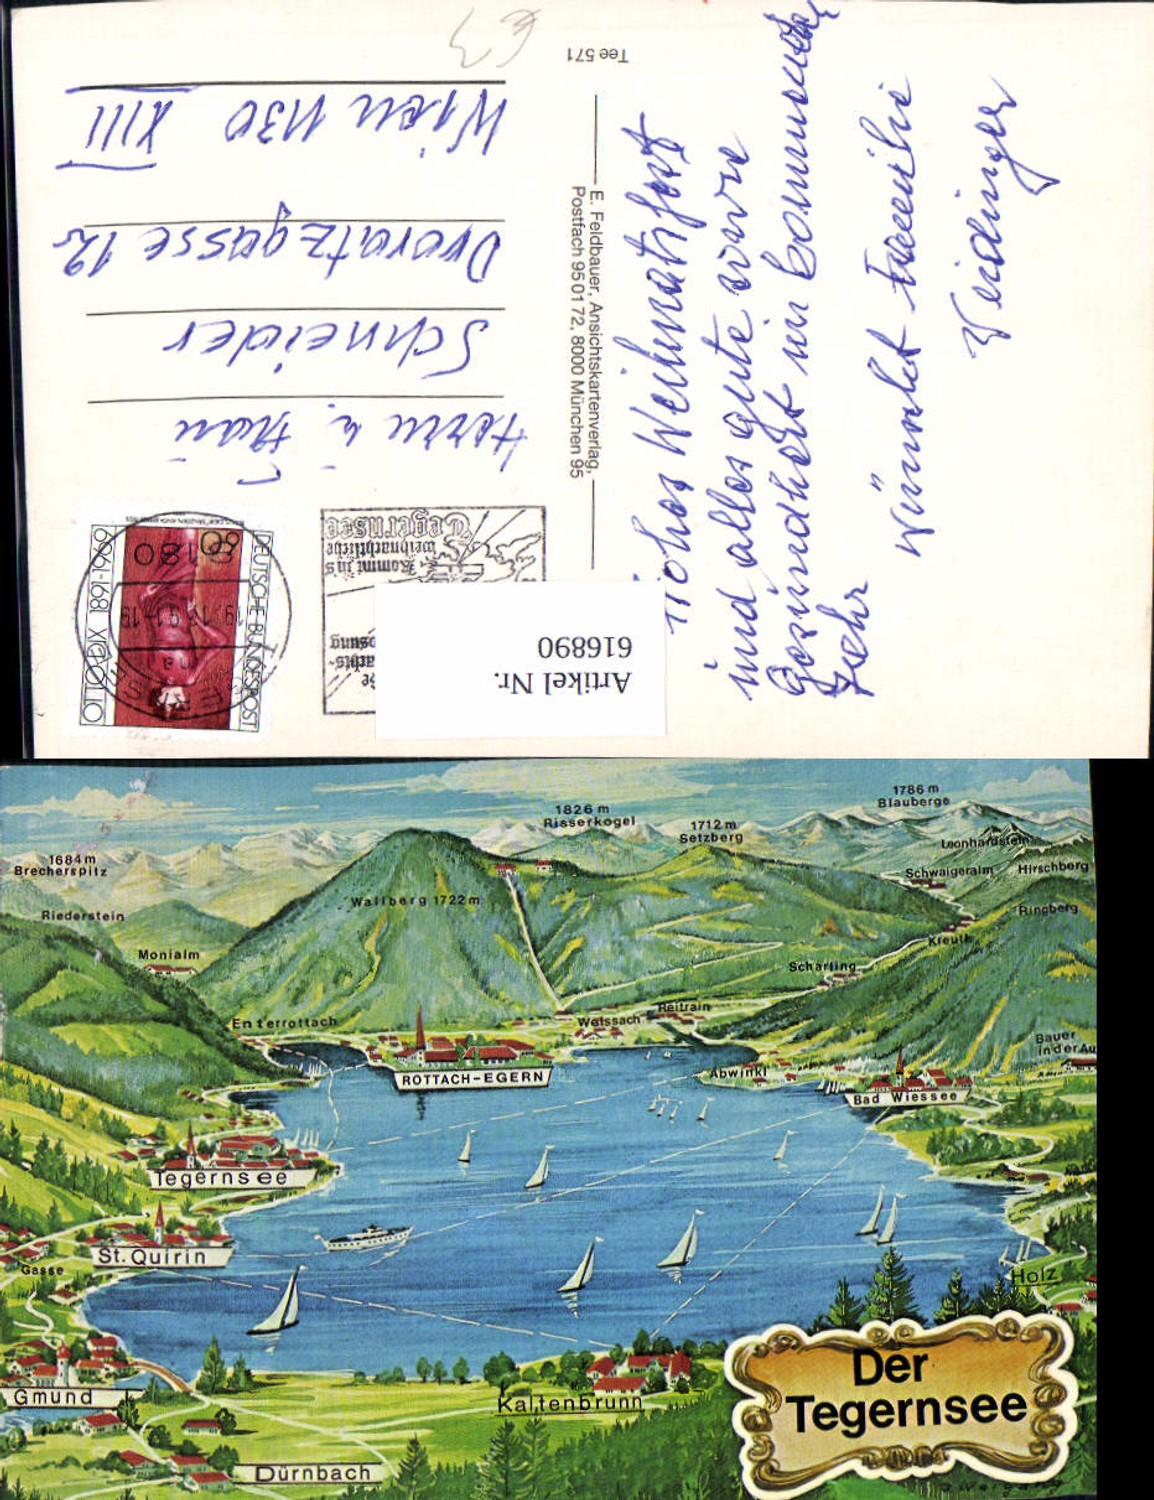 Tee 571
E. Feldbauer, Ansichtskartenverlag,
Postfach 95 01 72, 8000 München 95
Frohes Weihnatsfest
und alles gute sowie
Gesundheit im kommenden
Jahr
Wünscht Familie
Weidinger
DEUTSCHE BUNDESPOST
OTTO DIX 1891-1969
60
Kommt in's
weihnachtliche
Tegernsee
Herrn u. Frau
Schneider
Dvoratzgasse 12
Wien 1130 XIII
€ 3
Artikel Nr.
616890
1786 m
Blauberge
1826 m
Risserkogel
1712 m
Setzberg
Leonhardstein
1684 m
Brecherspitz
Schwaigeralm
Hirschberg
Wallberg 1722 m
Ringberg
Riederstein
Kreuth
Monialm
Scharling
Reitrain
Enterrottach
Weissach
Bauer
in der Au
Abwinkl
ROTTACH-EGERN
Bad Wiessee
Tegernsee
St. Quirin
Gasse
Holz
Gmund
Kaltenbrunn
Dürnbach
Der
Tegernsee